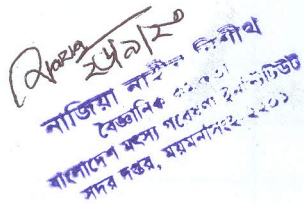 নাজিয়া নাঈম নিশীথ
বৈজ্ঞানিক কর্মকর্তা
বাংলাদেশ মৎস্য গবেষণা ইনস্টিটিউট
সদর দপ্তর, ময়মনসিংহ ২২০১